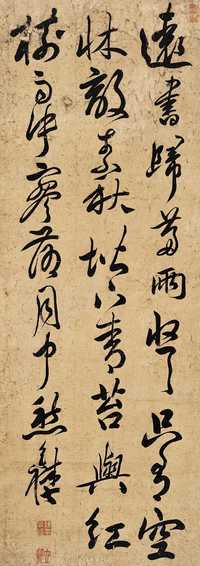 遠書歸夢兩悠々只有空
牀敵素秋堦下青苔與紅
樹雨中寥落月中愁